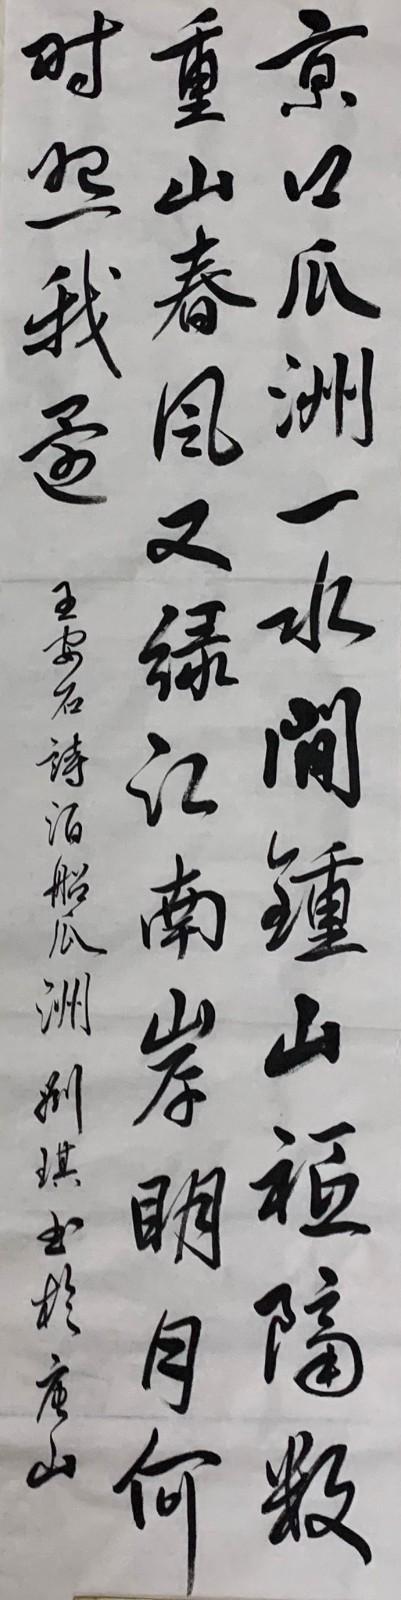 京口瓜洲一水間鍾山祗隔數
重山春风又緑江南岸明月何
时照我還
王安石詩泊船瓜洲 劉琪书於唐山